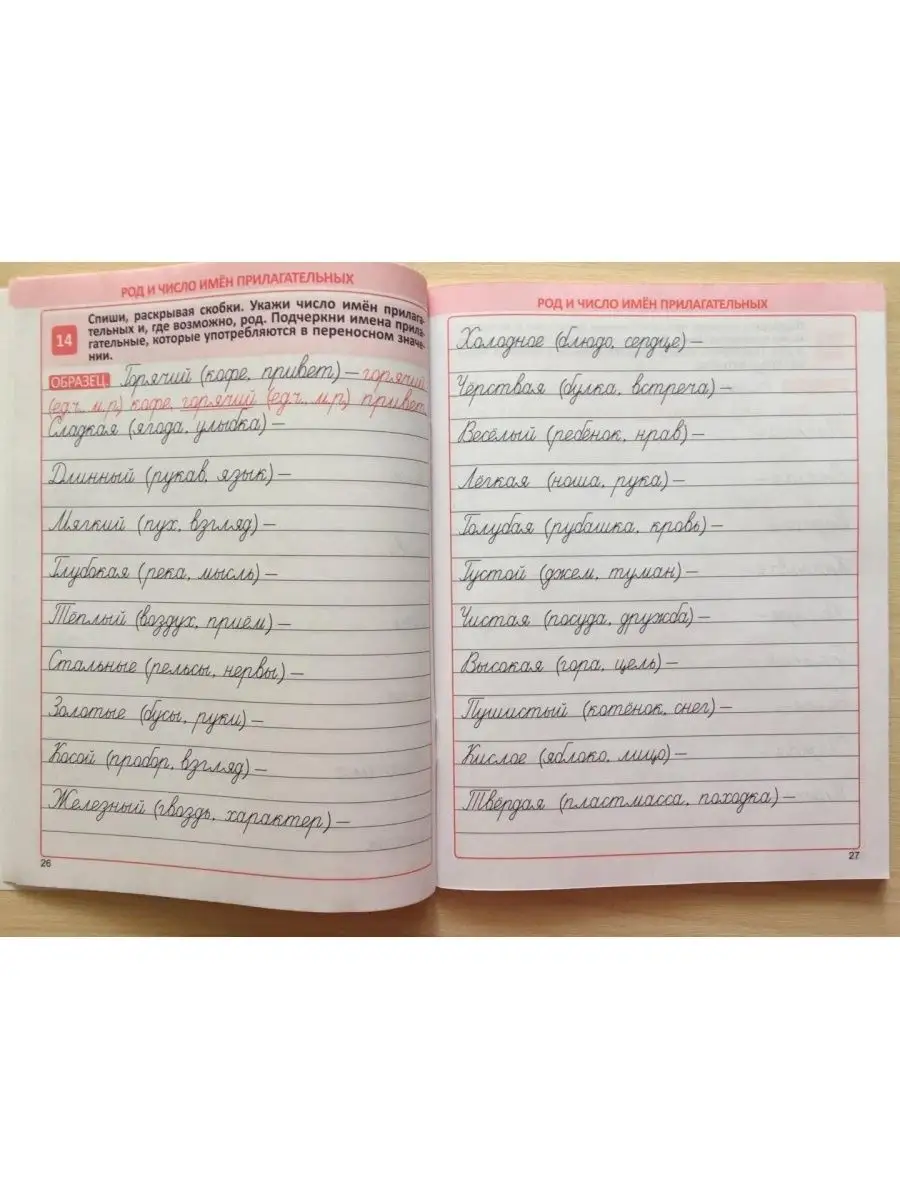 РОД И ЧИСЛО ИМЁН ПРИЛАГАТЕЛЬНЫХ
14
Спиши, раскрывая скобки. Укажи число имён прилага-
тельных и, где возможно, род. Подчеркни имена прила-
гательные, которые употребляются в переносном значе-
нии.
ОБРАЗЕЦ. Горячий (кофе, привет) – горячий
(ед.ч., м.р.) кофе, горячий (ед.ч., м.р.) привет.
Сладкая (ягода, улыбка) –
Длинный (рукав, язык) –
Мягкий (пух, взгляд) –
Глубокая (река, мысль) –
Тёплый (воздух, приём) –
Стальные (рельсы, нервы) –
Золотые (бусы, руки) –
Косой (пробор, взгляд) –
Железный (гвоздь, характер) –
26
РОД И ЧИСЛО ИМЁН ПРИЛАГАТЕЛЬНЫХ
Холодное (блюдо, сердце) –
Чёрствая (булка, встреча) –
Весёлый (ребёнок, нрав) –
Лёгкая (ноша, рука) –
Голубая (рубашка, кровь) –
Густой (джем, туман) –
Чистая (посуда, дружба) –
Высокая (гора, цель) –
Пушистый (котёнок, снег) –
Кислое (яблоко, лицо) –
Твёрдая (пластмасса, походка) –
27